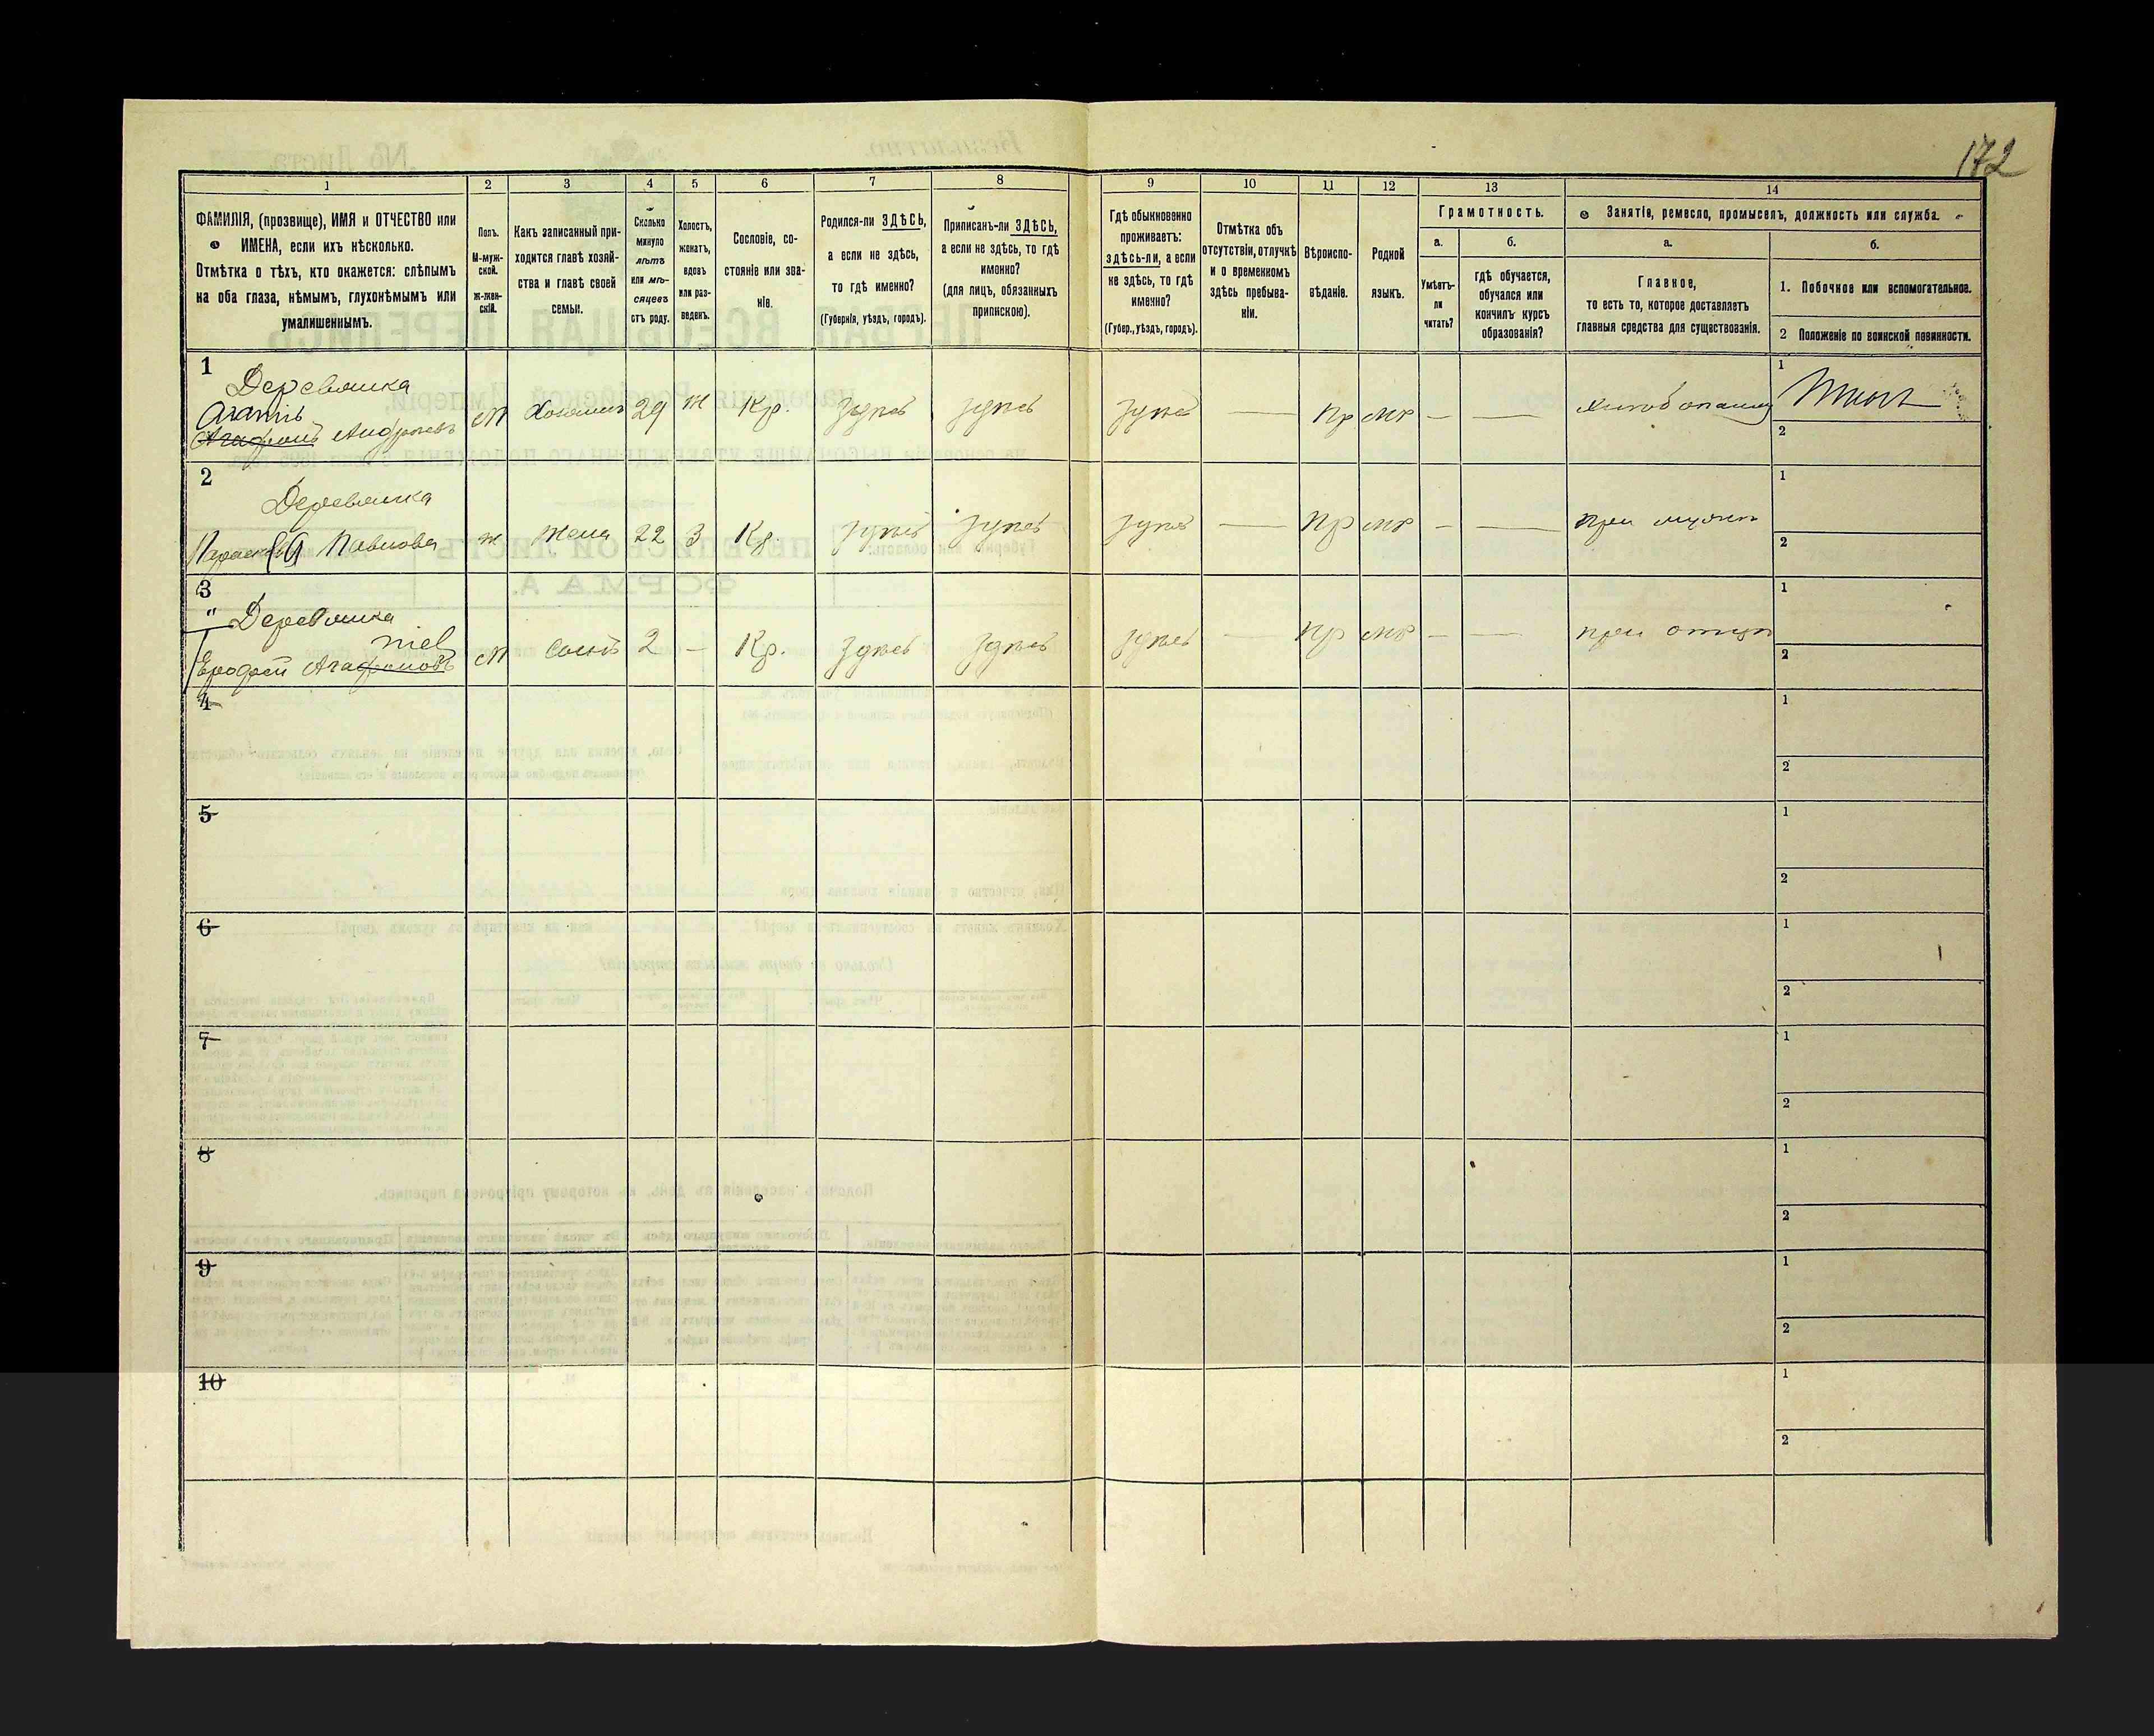 172
1 2 3 4 5 6 7 8 9 10 11 12 13 14
ФАМИЛІЯ, (прозвище), ИМЯ и ОТЧЕСТВО или
ИМЕНА, если ихъ нѣсколько.
Отмѣтка о тѣхъ, кто окажется: слѣпымъ
на оба глаза, нѣмымъ, глухонѣмымъ или
умалишеннымъ.
Полъ.
М-муж-
ской.
ж-жен-
скій.
Какъ записанный при-
ходится главѣ хозяй-
ства и главѣ своей
семьи.
Сколько
минуло
лѣтъ
или мѣ-
сяцевъ
отъ роду.
Холостъ,
женатъ,
вдовъ
или раз-
веденъ.
Сословіе, со-
стояніе или зва-
ніе.
Родился-ли ЗДѢСЬ,
а если не здѣсь,
то гдѣ именно?
(Губернія, уѣздъ, городъ).
Приписанъ-ли ЗДѢСЬ,
а если не здѣсь, то гдѣ
именно?
(для лицъ, обязанныхъ
припискою).
Гдѣ обыкновенно
проживаетъ:
здѣсь-ли, а если
не здѣсь, то гдѣ
именно?
(Губер., уѣздъ, городъ).
Отмѣтка объ
отсутствіи, отлучкѣ
и о временномъ
здѣсь пребыва-
ніи.
Вѣроиспо-
вѣданіе.
Родной
языкъ.
Грамотность.
а.
Умѣетъ-
ли
читать?
б.
гдѣ обучается,
обучался или
кончилъ курсъ
образованія?
Занятіе, ремесло, промыселъ, должность или служба.
а.
Главное,
то есть то, которое доставляетъ
главныя средства для существованія.
б.
1. Побочное или вспомогательное.
2 Положеніе по воинской повинности.
1
Деревянка
Агапій
Агафонъ Андреевъ М Хозяинъ 29 ж Кр. Здѣсь здѣсь здѣсь — Пр мр — —
1
2
2
Деревянка
Параскевія Павлова ж жена 22 З Кр. здѣсь здѣсь здѣсь — Пр мр — — при мужѣ
1
2
3
" Деревянка
Ерофей Агафоновъ М сынъ 2 — Кр. Здѣсь Здѣсь здѣсь — Пр мр — — при отцѣ
1
2
4
1
2
5
1
2
6
1
2
7
1
2
8
1
2
9
1
2
10
1
2